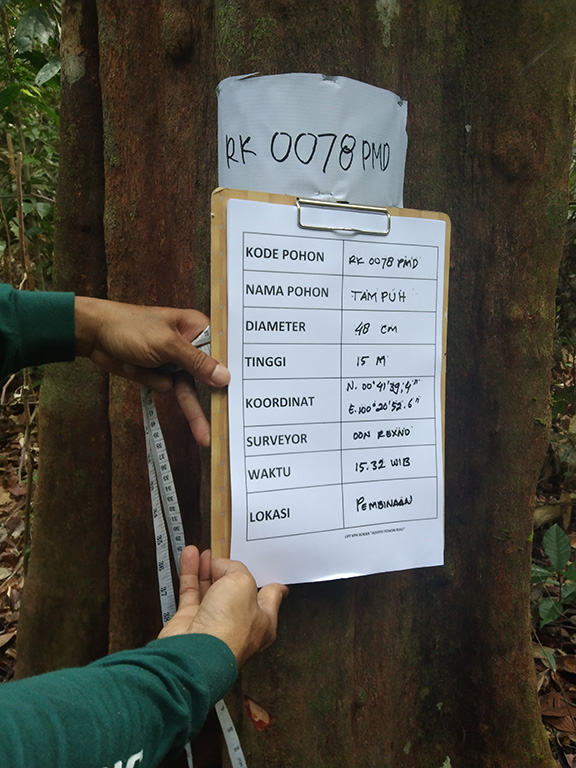 RK 0078 PMD
KODE POHON RK 0078 PMD
NAMA POHON TAMPUH
DIAMETER 48 CM
TINGGI 15 M
KOORDINAT N. 00°41'39,4"
E.100°20'52.6"
SURVEYOR DON REXNO
WAKTU 15.32 WIB
LOKASI PEMBINAAN